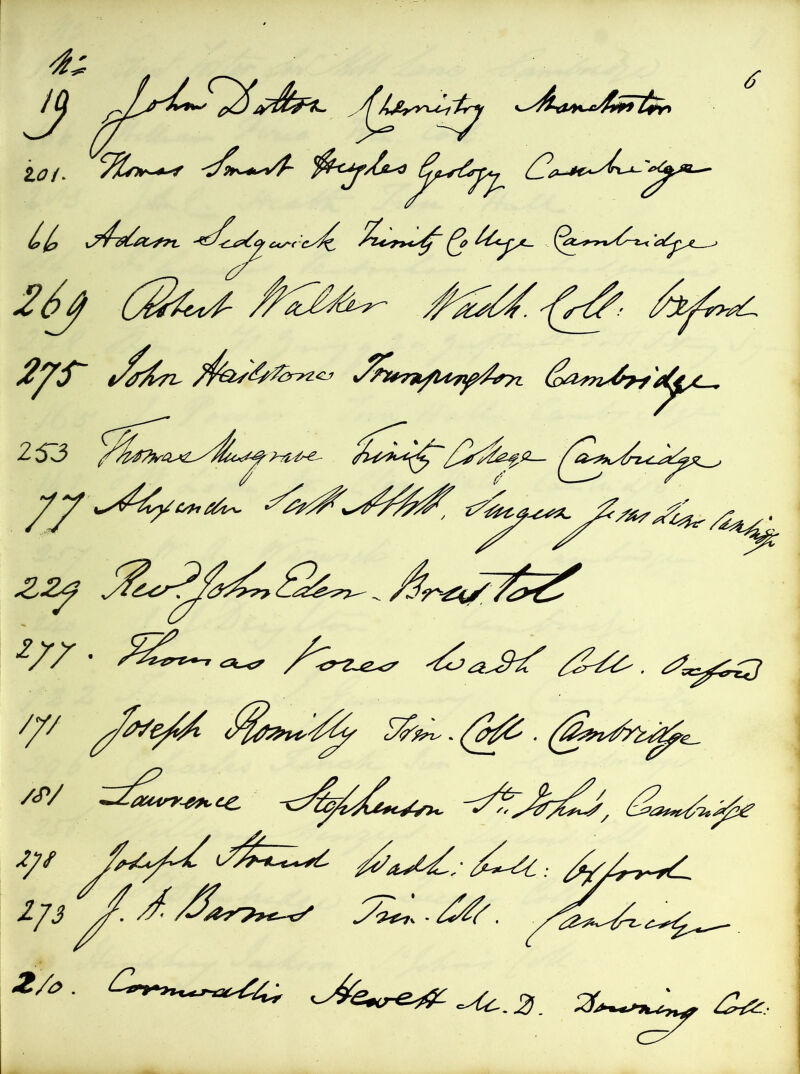 No
6
19 John Dalton Chemistry Manchester
201. Thomas Smart Hughes Geology Cambridge
66 Adam Sedgwick Trinity College Cambridge
269 Robert Walker Wadh. Coll: Oxford
275 John Hailstone Trumpington Cambridge
253 Thomas Musgrave Trinity College Cambridge
77 Alexander Scott Abbott, Surgeon Jesus Lane Cambridge
229 Revd. John Eden - Bristol
277. Thomas Vores Wadh Coll. Oxford
171 Joseph Romilly Trin. Coll. Cambridge
181 Lawrence Stephenson St. John's, Cambridge
278 Joseph Wadh: Coll: Oxford
273 J. A. Barnes Trin. Coll. Cambridge
210. Cornwallis Hewett M.D. Downing Coll: